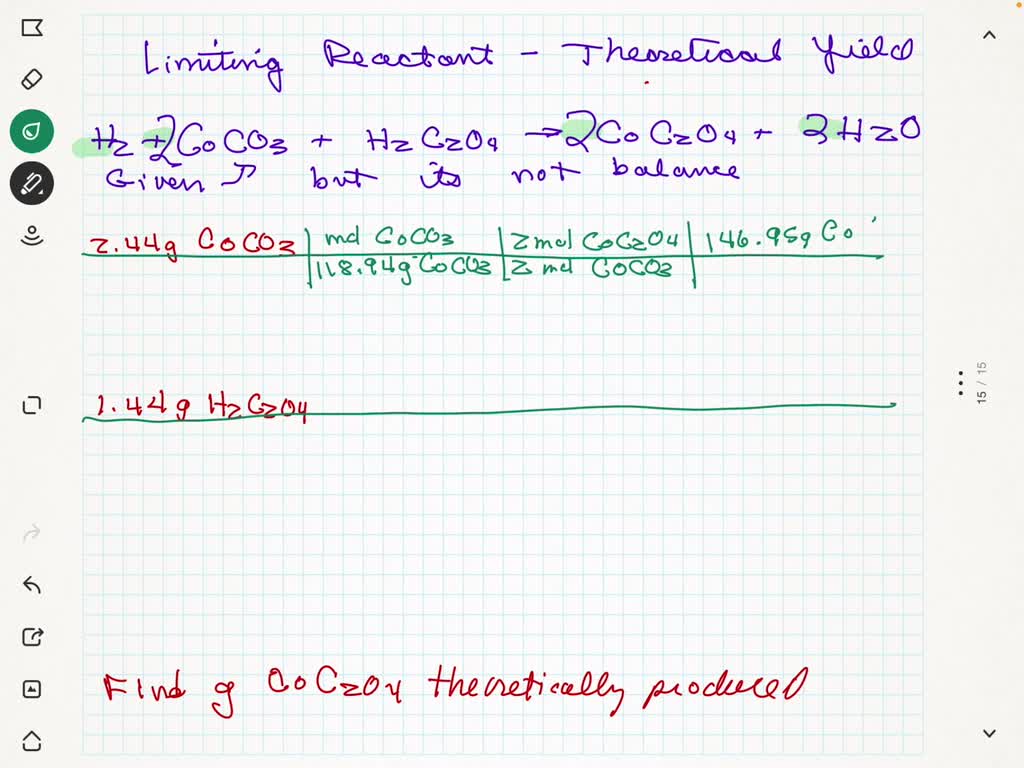 Limiting Reactant - Theoretical Yield
H2 + 2CoCO3 + H2C2O4 → 2CoC2O4 + 3H2O
Given ↗ but its not balance
2.44g CoCO3 | mol CoCO3 | 2 mol CoC2O4 | 146.95g Co
118.94g CoCO3 | 2 mol CoCO3
1.44g H2C2O4
Find g CoC2O4 theoretically produced
15 / 15